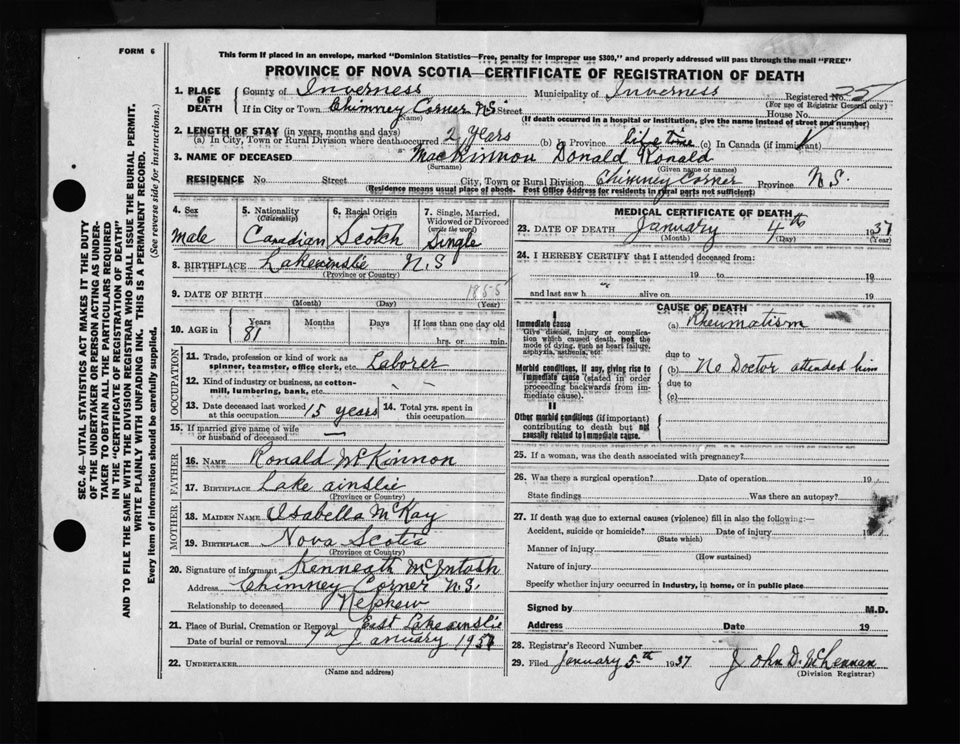 FORM 6
This form If placed in an envelope, marked "Dominion Statistics—Free, penalty for improper use $300," and properly addressed will pass through the mail "FREE"
PROVINCE OF NOVA SCOTIA—CERTIFICATE OF REGISTRATION OF DEATH
1. PLACE OF DEATH County of Inverness Municipality of Inverness Registered No.
(For use of Registrar General only)
If in City or Town Chimney Corner N.S. Street House No.
(Name) (If death occurred in a hospital or institution, give the name instead of street and number)
2. LENGTH OF STAY (in years, months and days)
(a) In City, Town or Rural Division where death occurred 2 Years (b) In Province life time (c) In Canada (if immigrant)
3. NAME OF DECEASED MacKinnon Donald Ronald
(Surname) (Given name or names)
RESIDENCE No Street City, Town or Rural Division Chimney Corner Province N.S.
(Residence means usual place of abode. Post Office Address for residents in rural parts not sufficient)
4. Sex Male
5. Nationality (Citizenship) Canadian
6. Racial Origin Scotch
7. Single, Married, Widowed or Divorced (write the word) Single
8. BIRTHPLACE Lake ainslie N.S
(Province or Country)
9. DATE OF BIRTH 1855
(Month) (Day) (Year)
10. AGE in Years 81 Months Days If less than one day old
hrs. or min.
OCCUPATION
11. Trade, profession or kind of work as spinner, teamster, office clerk, etc. Laborer
12. Kind of industry or business, as cotton-mill, lumbering, bank, etc. " "
13. Date deceased last worked at this occupation 15 years 14. Total yrs. spent in this occupation
15. If married give name of wife or husband of deceased —
FATHER
16. NAME Ronald McKinnon
17. BIRTHPLACE Lake ainslie
(Province or Country)
MOTHER
18. MAIDEN NAME Isabella McKay
19. BIRTHPLACE Nova Scotia
(Province or Country)
20. Signature of informant Kenneath McIntosh
Address Chimney Corner N.S.
Relationship to deceased Nephew
21. Place of Burial, Cremation or Removal East Lake ainslie
Date of burial or removal 7th January 1937
22. UNDERTAKER
(Name and address)
MEDICAL CERTIFICATE OF DEATH
23. DATE OF DEATH January 4th 1937
(Month) (Day) (Year)
24. I HEREBY CERTIFY that I attended deceased from:
19 to 19
and last saw h alive on 19
CAUSE OF DEATH
I
Immediate cause
Give disease, injury or complication which caused death, not the mode of dying, such as heart failure, asphyxia, asthenia, etc.
(a) Rheumatism
due to
Morbid conditions, if any, giving rise to immediate cause (stated in order proceeding backwards from immediate cause).
(b) No Doctor attended him
due to
(c)
II
Other morbid conditions (if important) contributing to death but not causally related to immediate cause.
25. If a woman, was the death associated with pregnancy?
26. Was there a surgical operation? Date of operation 19
State findings Was there an autopsy?
27. If death was due to external causes (violence) fill in also the following:—
Accident, suicide or homicide? Date of injury 19
(State which)
Manner of injury
(How sustained)
Nature of injury
Specify whether injury occurred in industry, in home, or in public place
Signed by M.D.
Address Date 19
28. Registrar's Record Number
29. Filed January 5th 1937 John D. McLennan
(Division Registrar)
SEC. 46—VITAL STATISTICS ACT MAKES IT THE DUTY
OF THE UNDERTAKER OR PERSON ACTING AS UNDER-
TAKER TO OBTAIN ALL THE PARTICULARS REQUIRED
IN THE "CERTIFICATE OF REGISTRATION OF DEATH"
AND TO FILE THE SAME WITH THE DIVISION REGISTRAR WHO SHALL ISSUE THE BURIAL PERMIT.
WRITE PLAINLY WITH UNFADING INK. THIS IS A PERMANENT RECORD.
Every item of information should be carefully supplied. (See reverse side for instructions.)